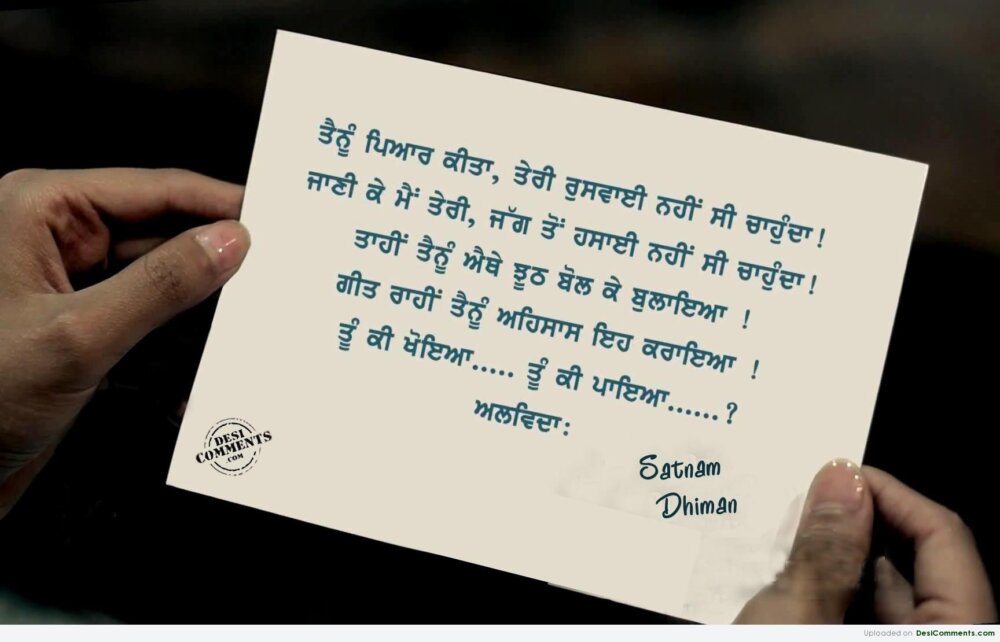 ਤੈਨੂੰ ਪਿਆਰ ਕੀਤਾ, ਤੇਰੀ ਰੁਸਵਾਈ ਨਹੀਂ ਸੀ ਚਾਹੁੰਦਾ!
ਜਾਣੀ ਕੇ ਮੈਂ ਤੇਰੀ, ਜੱਗ ਤੋਂ ਹਸਾਈ ਨਹੀਂ ਸੀ ਚਾਹੁੰਦਾ!
ਤਾਹੀਂ ਤੈਨੂੰ ਐਥੇ ਝੂਠ ਬੋਲ ਕੇ ਬੁਲਾਇਆ !
ਗੀਤ ਰਾਹੀਂ ਤੈਨੂੰ ਅਹਿਸਾਸ ਇਹ ਕਰਾਇਆ !
ਤੂੰ ਕੀ ਖੋਇਆ..... ਤੂੰ ਕੀ ਪਾਇਆ......?
ਅਲਵਿਦਾ:
Satnam
Dhiman
DESI
COMMENTS
.COM
Uploaded on DesiComments.com